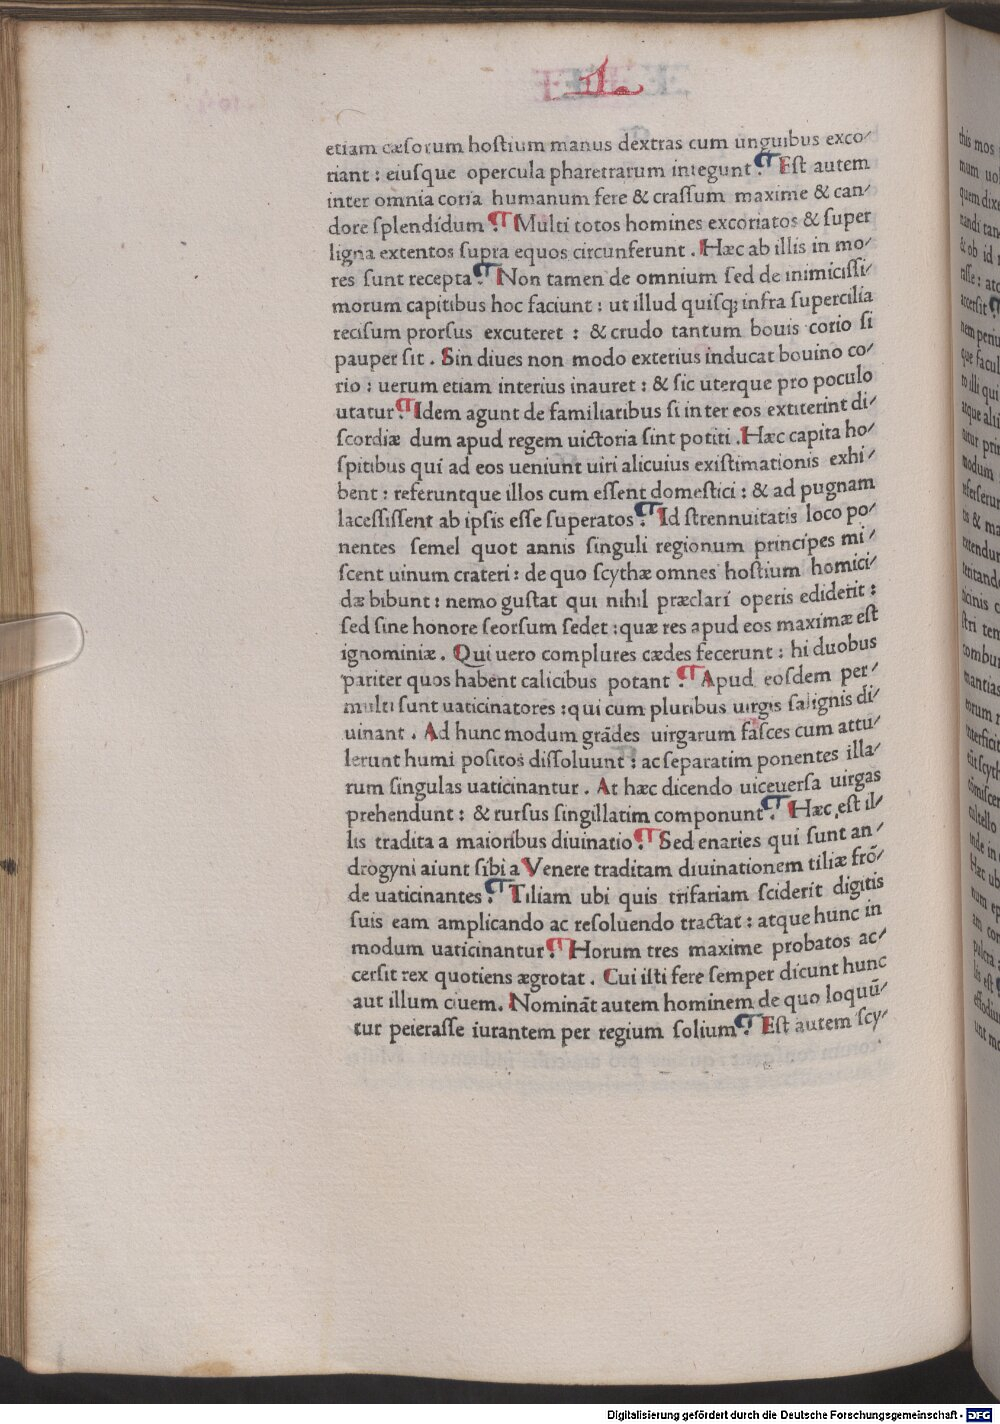 L
etiam cæſorum hoſtium manus dextras cum unguibus exco⸗
riant : eiuſque opercula pharetrarum integunt. ¶ Eſt autem
inter omnia coria humanum fere & craſſum maxime & can⸗
dore ſplendidum. ¶ Multi totos homines excoriatos & ſuper
ligna extentos ſupra equos circunferunt . Hæc ab illis in mo⸗
res ſunt recepta. ¶ Non tamen de omnium ſed de inimiciſſi⸗
morum capitibus hoc faciunt : ut illud quiſqꝫ infra ſupercilia
reciſum prorſus excuteret : & crudo tantum bouis corio ſi
pauper ſit . Sin diues non modo exterius inducat bouino co⸗
rio : uerum etiam interius inauret : & ſic uterque pro poculo
utatur. ¶ Idem agunt de familiaribus ſi inter eos extiterint di⸗
ſcordiæ dum apud regem uictoria ſint potiti . Hæc capita ho⸗
ſpitibus qui ad eos ueniunt uiri alicuius exiſtimationis exhi⸗
bent : referuntque illos cum eſſent domeſtici : & ad pugnam
laceſſiſſent ab ipſis eſſe ſuperatos. ¶ Id ſtrennuitatis loco po⸗
nentes ſemel quot annis ſinguli regionum principes mi⸗
ſcent uinum crateri : de quo ſcythæ omnes hoſtium homici⸗
dæ bibunt : nemo guſtat qui nihil præclari operis ediderit :
ſed ſine honore ſeorſum ſedet : quæ res apud eos maximæ eſt
ignominiæ . Qui uero complures cædes fecerunt : hi duobus
pariter quos habent calicibus potant. ¶ Apud eoſdem per⸗
multi ſunt uaticinatores : qui cum pluribus uirgis ſalignis di⸗
uinant . Ad hunc modum grādes uirgarum faſces cum attu⸗
lerunt humi poſitos diſſoluunt : ac ſeparatim ponentes illa⸗
rum ſingulas uaticinantur . At hæc dicendo uiceuerſa uirgas
prehendunt : & rurſus ſingillatim componunt. ¶ Hæc eſt il⸗
lis tradita a maioribus diuinatio. ¶ Sed enaries qui ſunt an⸗
drogyni aiunt ſibi a Venere traditam diuinationem tiliæ frō⸗
de uaticinantes. ¶ Tiliam ubi quis trifariam ſciderit digitis
ſuis eam amplicando ac reſoluendo tractat : atque hunc in
modum uaticinantur. ¶ Horum tres maxime probatos ac⸗
cerſit rex quotiens ægrotat . Cui iſti fere ſemper dicunt hunc
aut illum ciuem . Nomināt autem hominem de quo loquū⸗
tur peieraſſe iurantem per regium ſolium. ¶ Eſt autem ſcy⸗
Digitalisierung gefördert durch die Deutsche Forschungsgemeinschaft - DFG